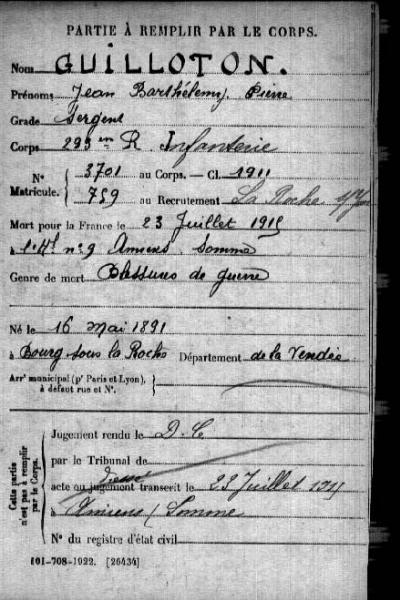 PARTIE À REMPLIR PAR LE CORPS.
Nom GUILLOTON.
Prénoms Jean Barthélemy Pierre
Grade Sergent
Corps 293 R. Infanterie
N° Matricule. { 3701 au Corps. — Cl. 1911
759 au Recrutement La Roche s/Yon
Mort pour la France le 23 Juillet 1915
à n° 9 Amiens Somme
Genre de mort Blessures de guerre
Né le 16 Mai 1891
à Bourg sous la Roche Département de la Vendée
Arr<sup>t</sup> municipal (p<sup>r</sup> Paris et Lyon), à défaut rue et N°. }
Cette partie n'est pas à remplir par le Corps.
Jugement rendu le D. C.
par le Tribunal de
acte ou jugement transcrit le 23 Juillet
à Amiens / Somme
N° du registre d'état civil
101-708-1922. [26434]